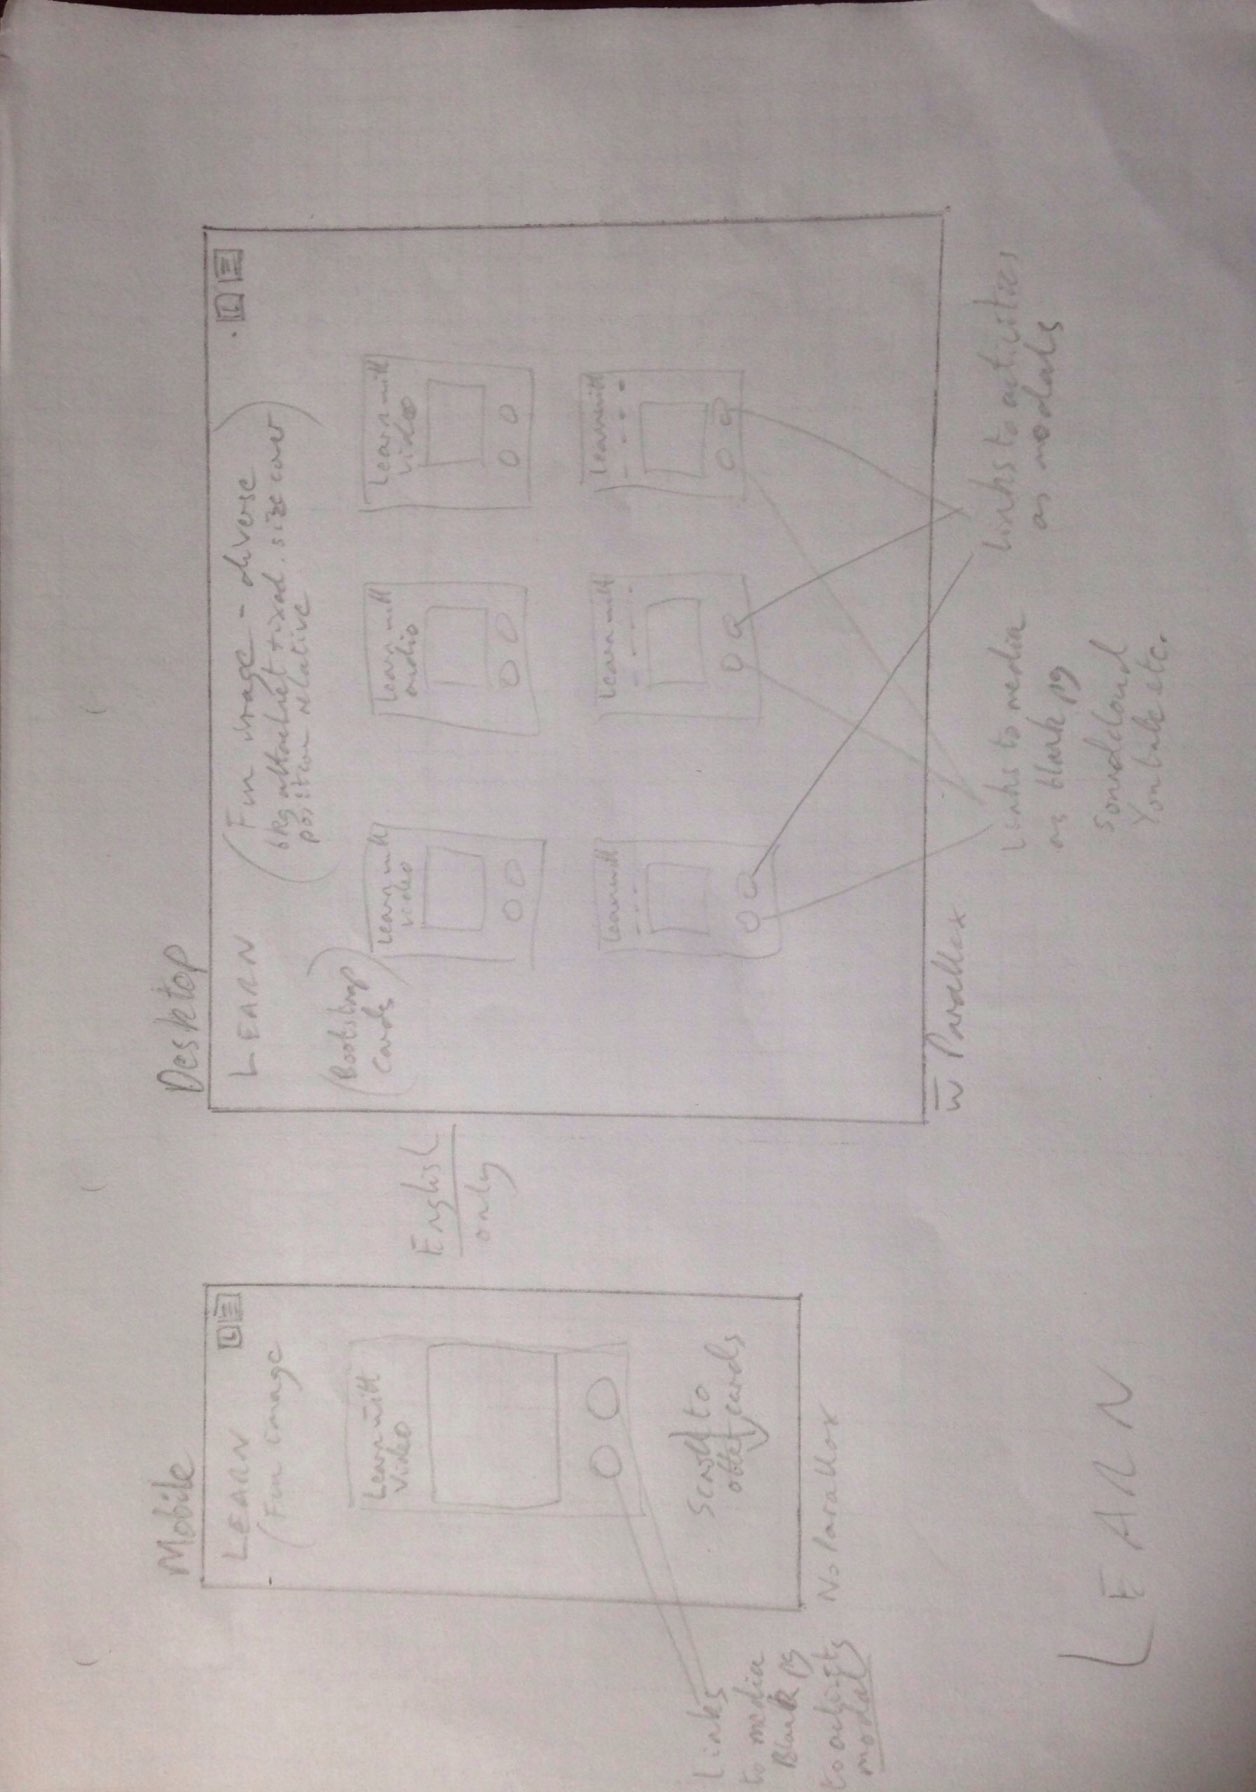 Mobile
LEARN
(Fun image
L
Learn with
video
Scroll to
other cards
No Parallax
Links
to media
Blank pg
to activity
modal
English
only
Desktop
LEARN
(Fun image - diverse
bkg attachmet fixed. size cover
position relative)
L
(Bootstrap
cards)
Learn with
video
Learn with
audio
Learn with
video
Learn with
Learn with
Learn with
w̄ Parallax
Links to media
as blank pg
Soundcloud
Youtube etc.
Links to activities
as modals
LEARN